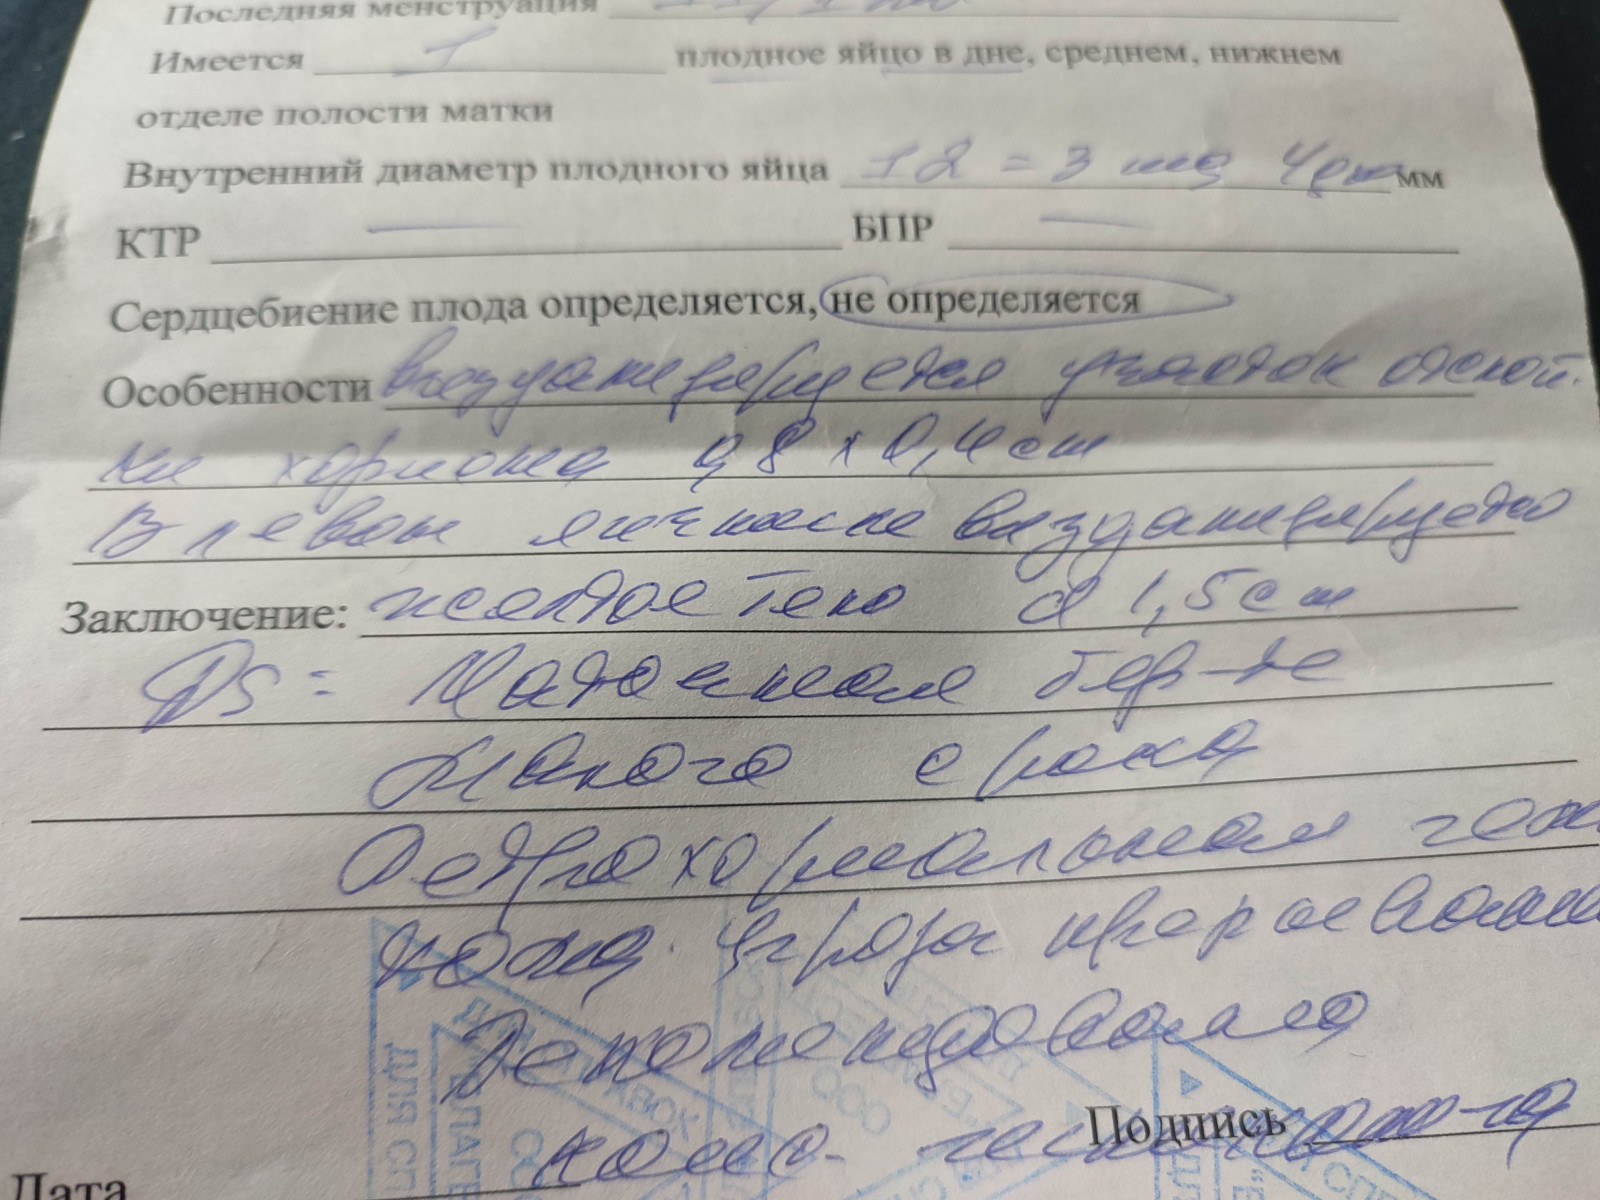 Последняя менструация
Имеется 1 плодное яйцо в дне, среднем, нижнем
отделе полости матки
Внутренний диаметр плодного яйца 12 = 3 нед 4 дн мм
КТР — БПР —
Сердцебиение плода определяется, не определяется
Особенности визуализируется участок отслой-
ки хориона 0,8 х 0,4 см
В левом яичнике визуализируется
Заключение: желтое тело d 1,5 см
DS: Маточная бер-ть
малого срока
Ретрохориальная гема
тома. Угроза прерывания
Рекомендовано
конс. гинеколога
Подпись
Дата
ДЛЯ СП